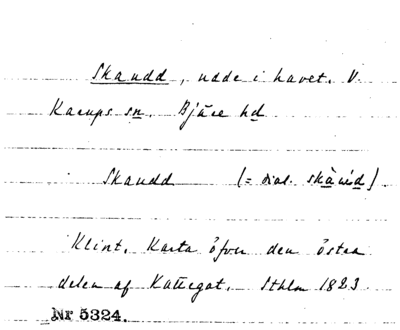 Skaudd, udde i havet. V.
Karups sn. Bjäre hd
Skaudd (= dial. skàwəd).
Klint. Karta öfver den östra
delen af Kattegat. Sthlm 1823
Nr 5324.